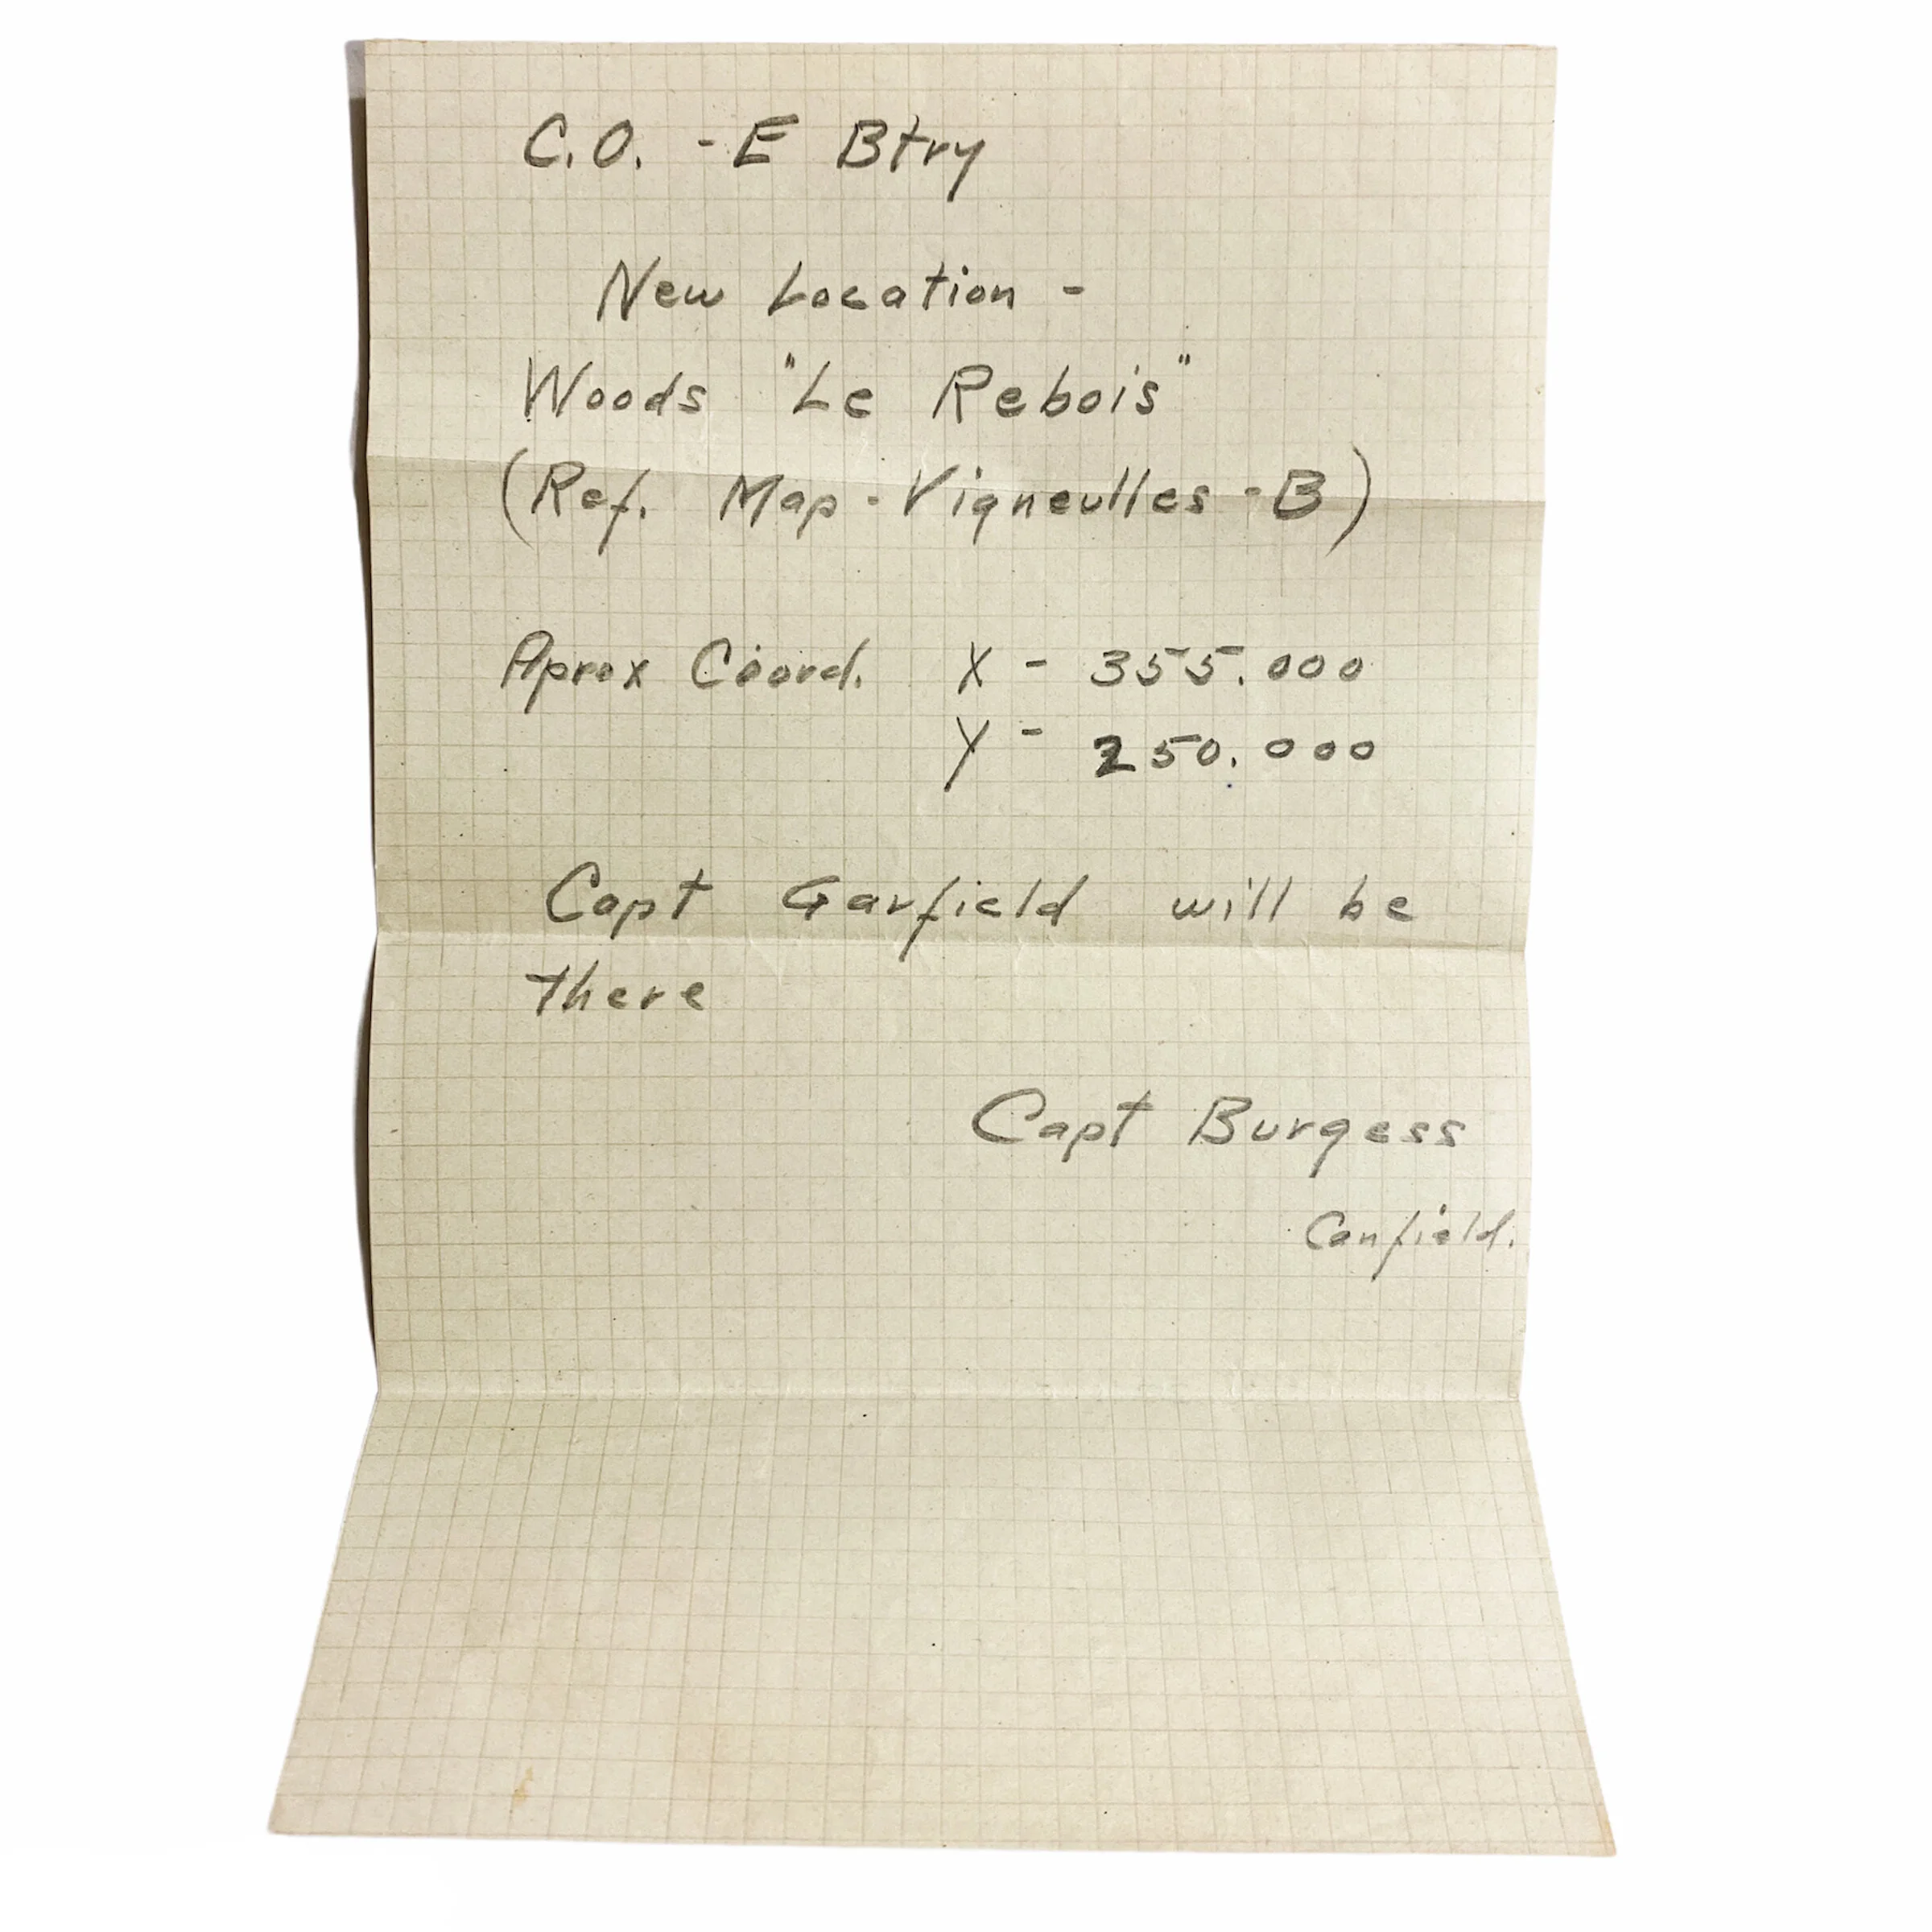 C.O. - E Btry
New Location -
Woods "Le Rebois"
(Ref. Map - Vigneulles - B)
Aprox Coord. X - 355.000
Y - 250.000
Capt Garfield will be
there
Capt Burgess
Canfield.